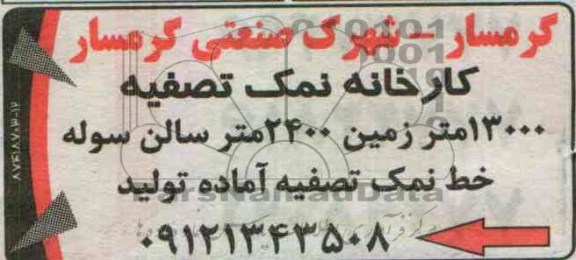 گرمسار - شهرک صنعتی گرمسار
کارخانه نمک تصفیه
۱۳۰۰۰متر زمین ۲۴۰۰متر سالن سوله
خط نمک تصفیه آماده تولید
ParsNamadData
۰۹۱۲۱۳۴۳۵۰۸